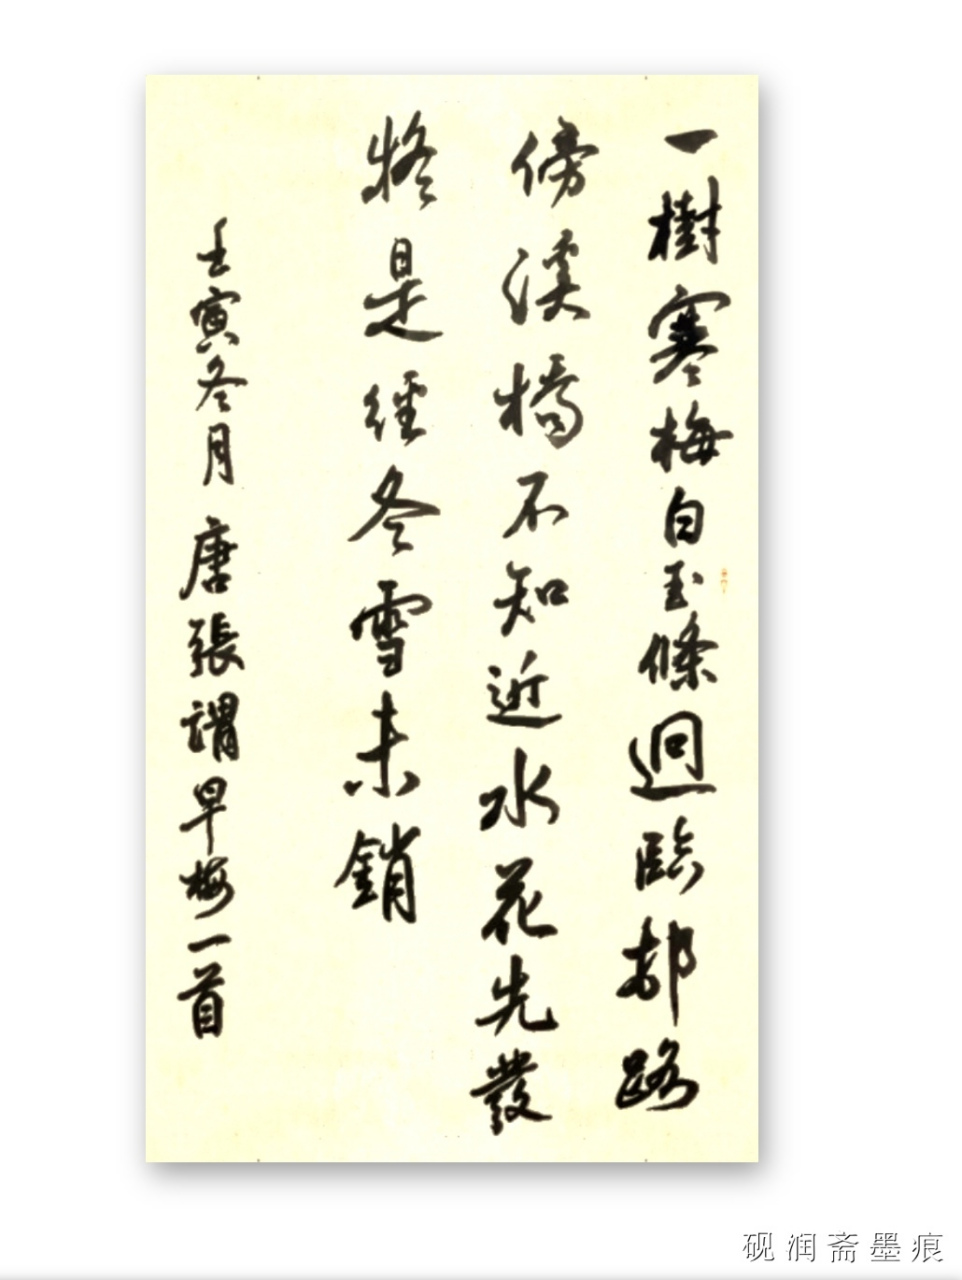 一樹寒梅白玉條迥臨邨路
傍溪橋不知近水花先發
疑是經冬雪未銷
壬寅冬月 唐張謂早梅一首
砚润斋墨痕